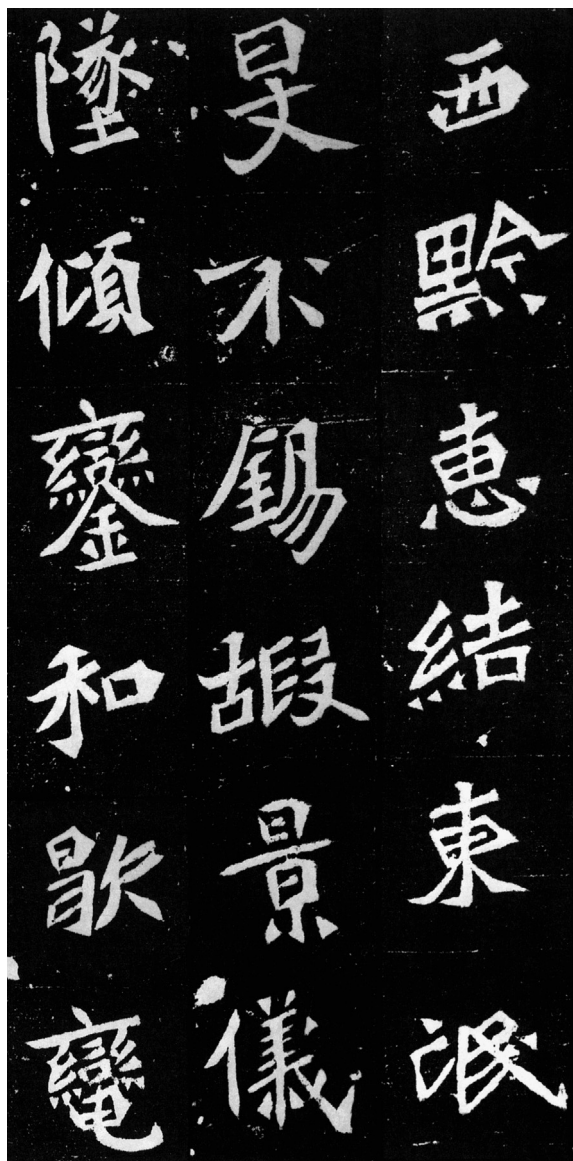 西黔惠結東氓
旻不錫嘏景儀
墜傾鑾和歇